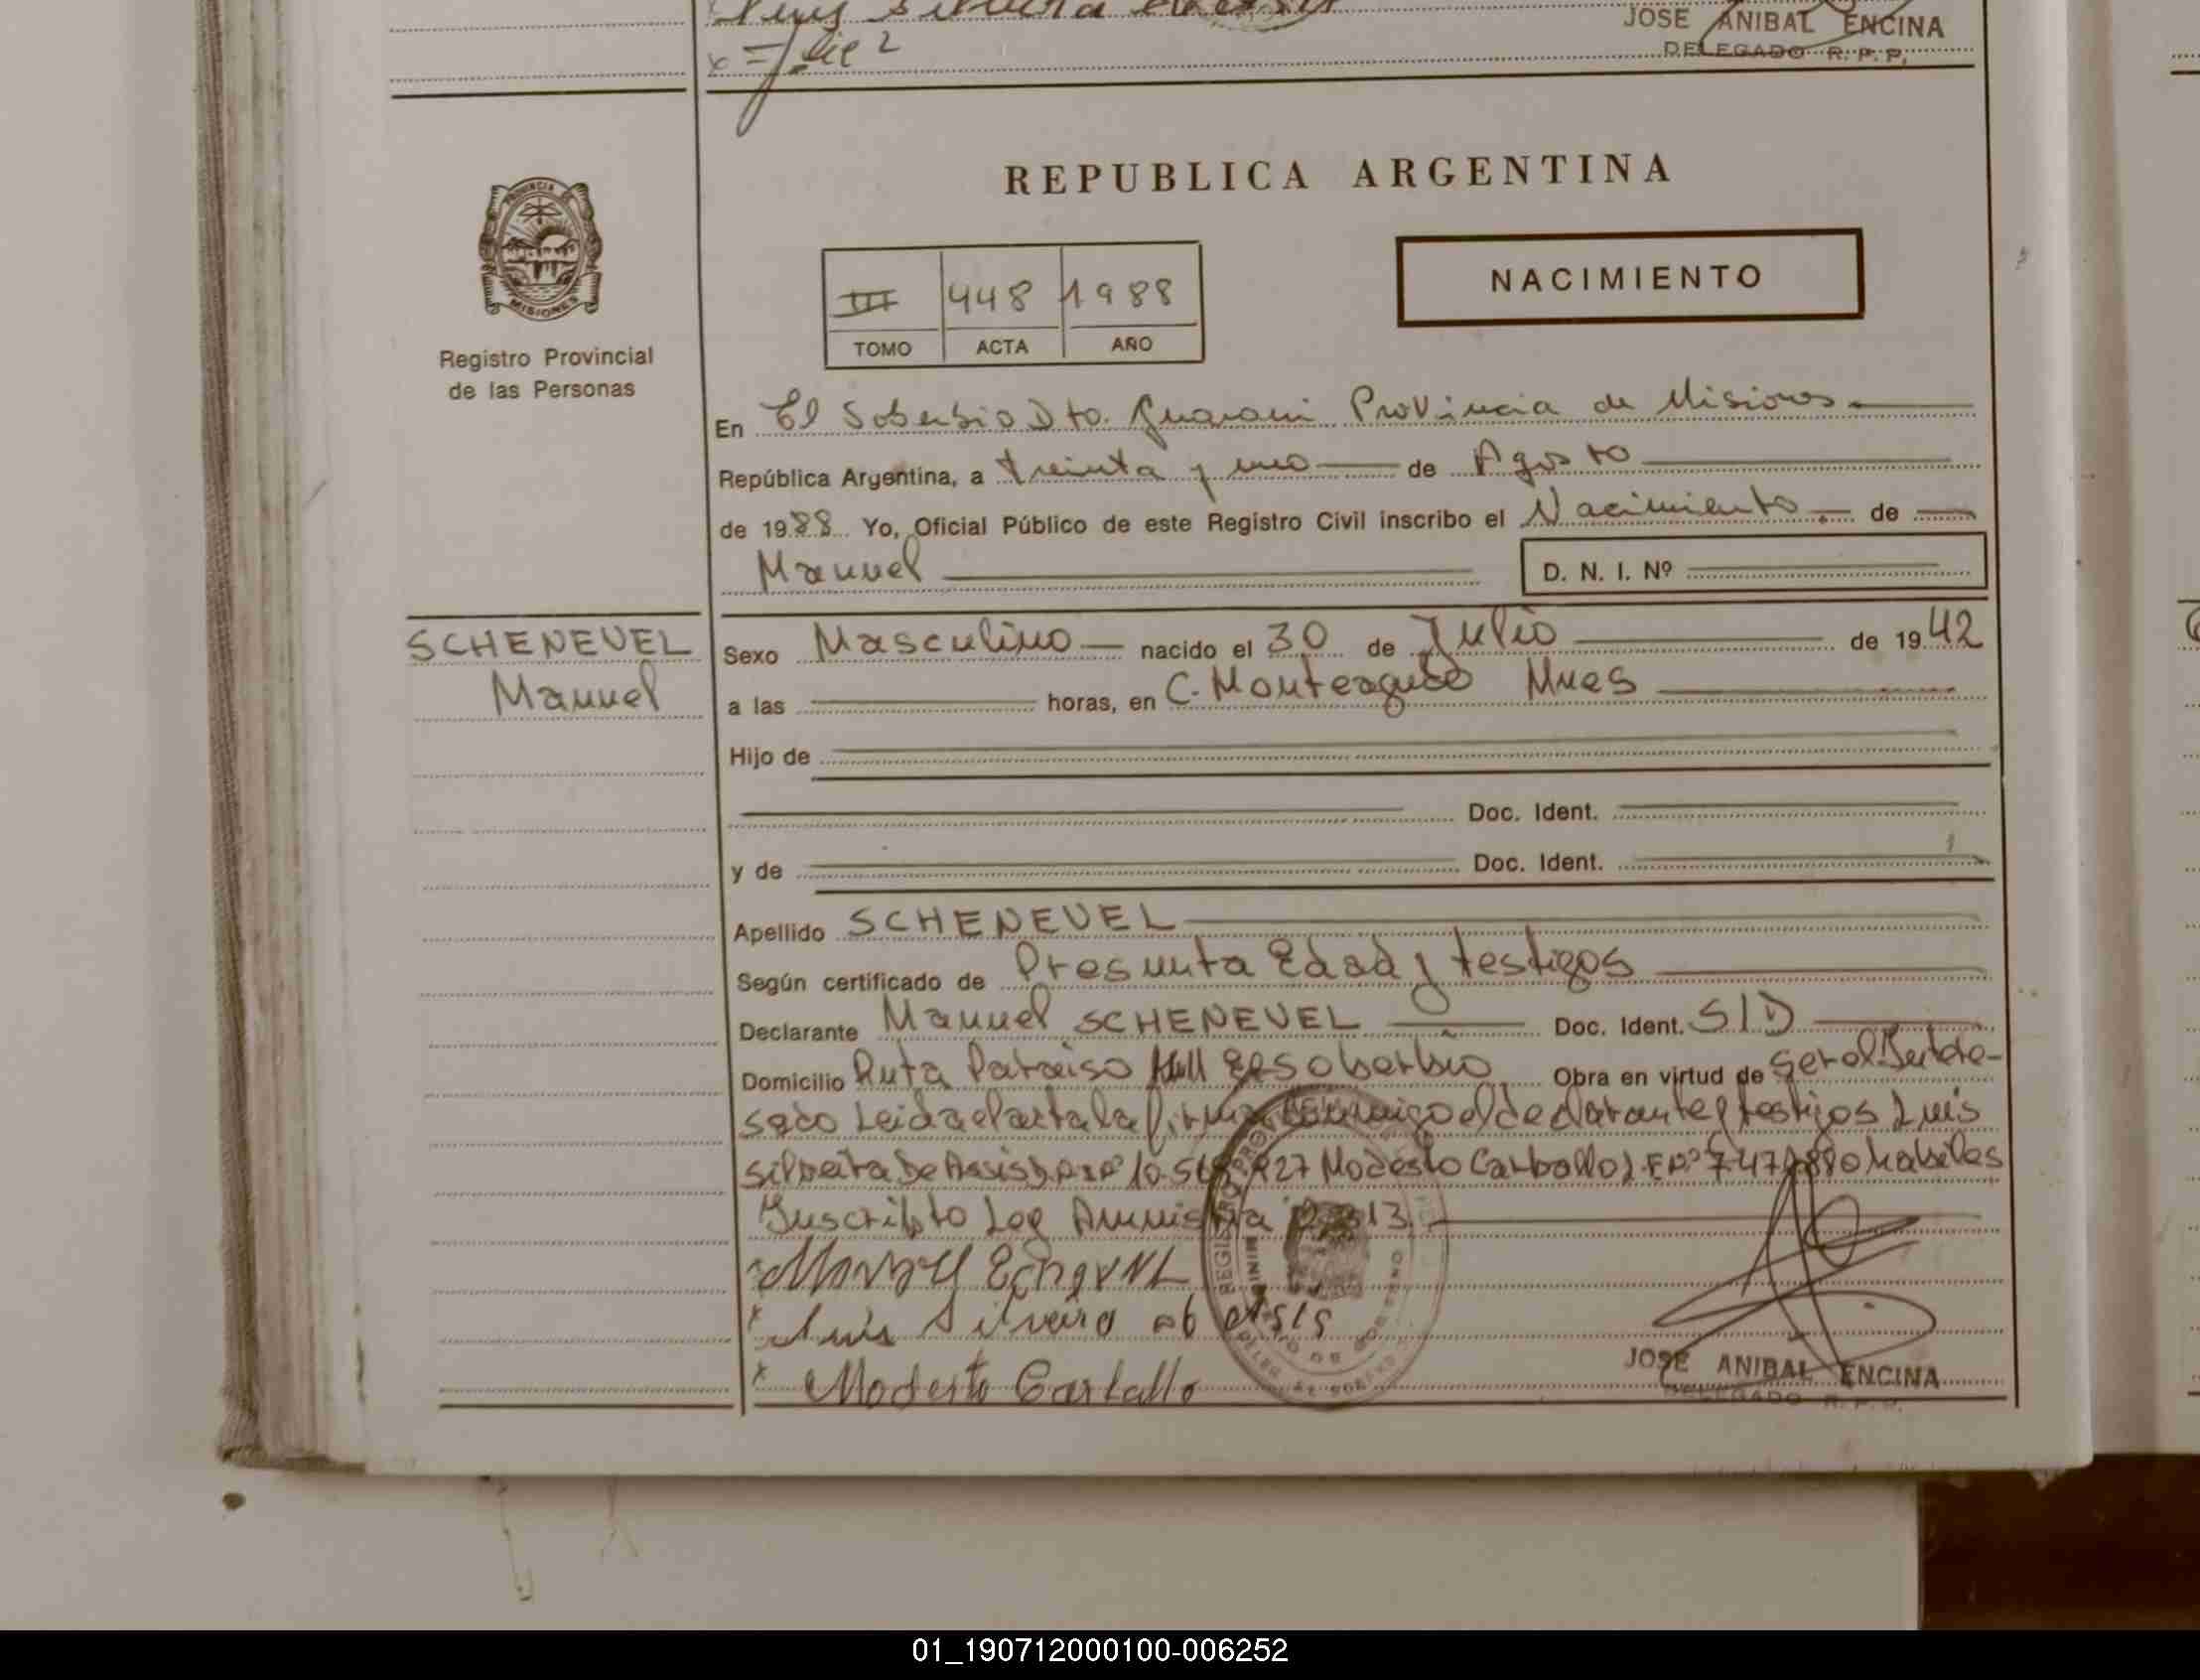 Luis Silveira
JOSE ANIBAL ENCINA
DELEGADO R. P. P.
PROVINCIA DE
MISIONES
Registro Provincial
de las Personas
REPUBLICA ARGENTINA
III 448 1988
TOMO ACTA AÑO
NACIMIENTO
En El Soberbio Dto. Guarani Provincia de Misiones
República Argentina, a treinta y uno de Agosto
de 1988 Yo, Oficial Público de este Registro Civil inscribo el Nacimiento de
Manuel D. N. I. Nº
SCHENEVEL
Manuel
Sexo Masculino nacido el 30 de Julio de 1942
a las horas, en C. Monteagudo Mnes
Hijo de
Doc. Ident.
y de Doc. Ident.
Apellido SCHENEVEL
Según certificado de Presunta Edad y testigos
Declarante Manuel SCHENEVEL Doc. Ident. S/D
Domicilio Ruta Paraiso El Soberbio Obra en virtud de ser el Intere-
sado Leida el acta la firma conmigo el declarante y testigos Luis
Silveira De Assis Modesto Carballo habiles
Inscripto Ley Amnistia
Luis Silveira de Asis
Modesto Carballo
JOSE ANIBAL ENCINA
DELEGADO R. P. P.
01_190712000100-006252